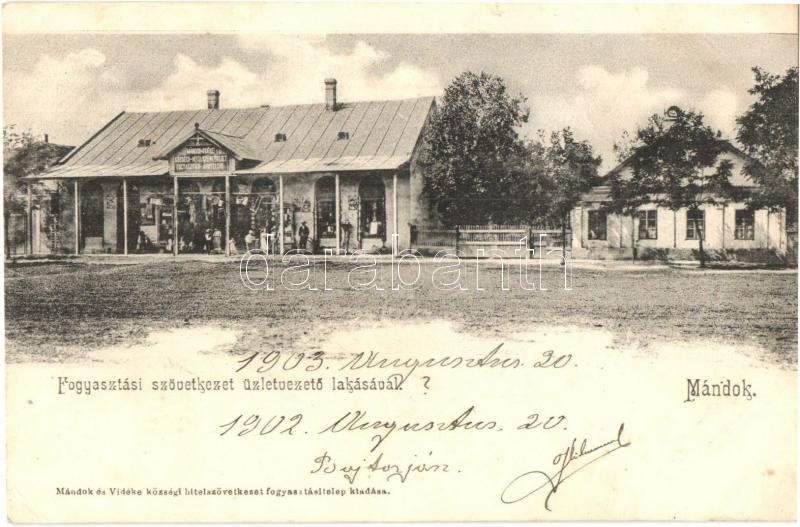 darabanth
1903. Augusztus. 20.
Fogyasztási szövetkezet üzletvezető lakásával. ?
Mándok.
1902. Augusztus. 20.
Mándok és Vidéke községi hitelszövetkezet fogyasztásitelep kiadása.